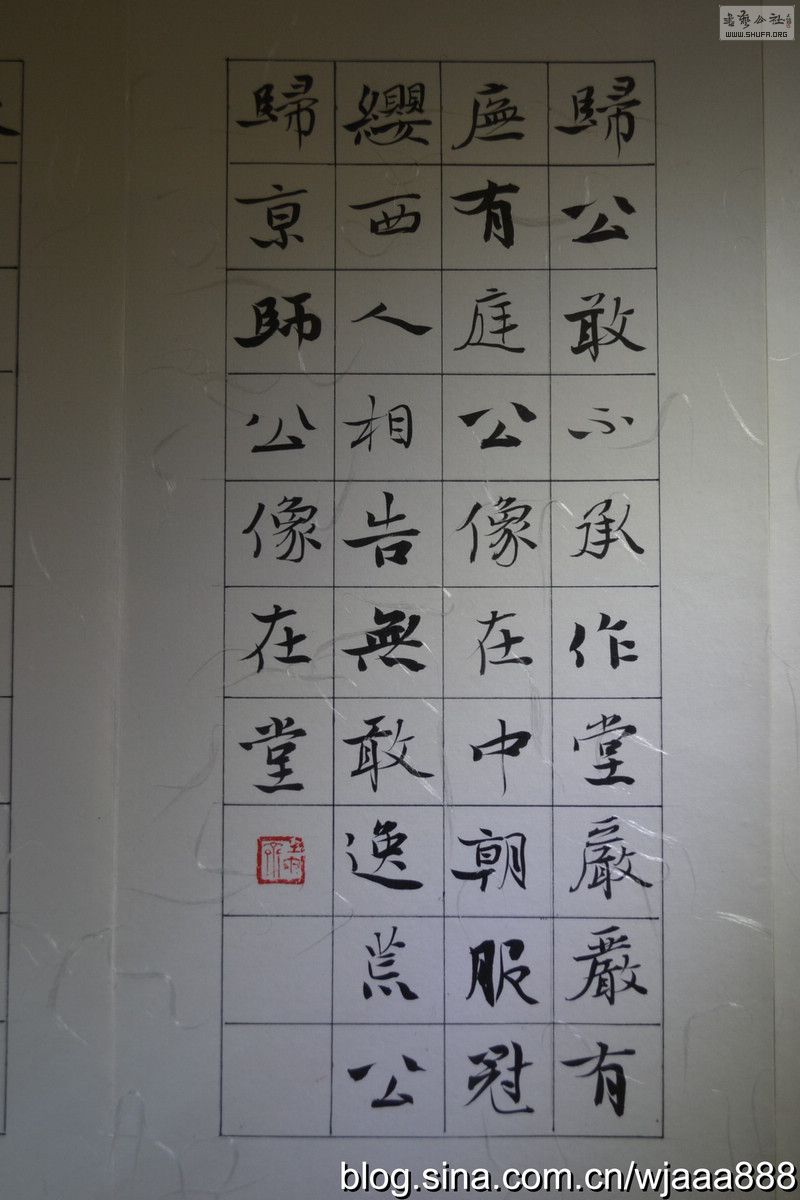 歸公敢不承作堂嚴嚴有
廡有庭公像在中朝服冠
纓西人相告無敢逸荒公
歸亰師公像在堂
書藝公社
WWW.SHUFA.ORG
blog.sina.com.cn/wjaaa888